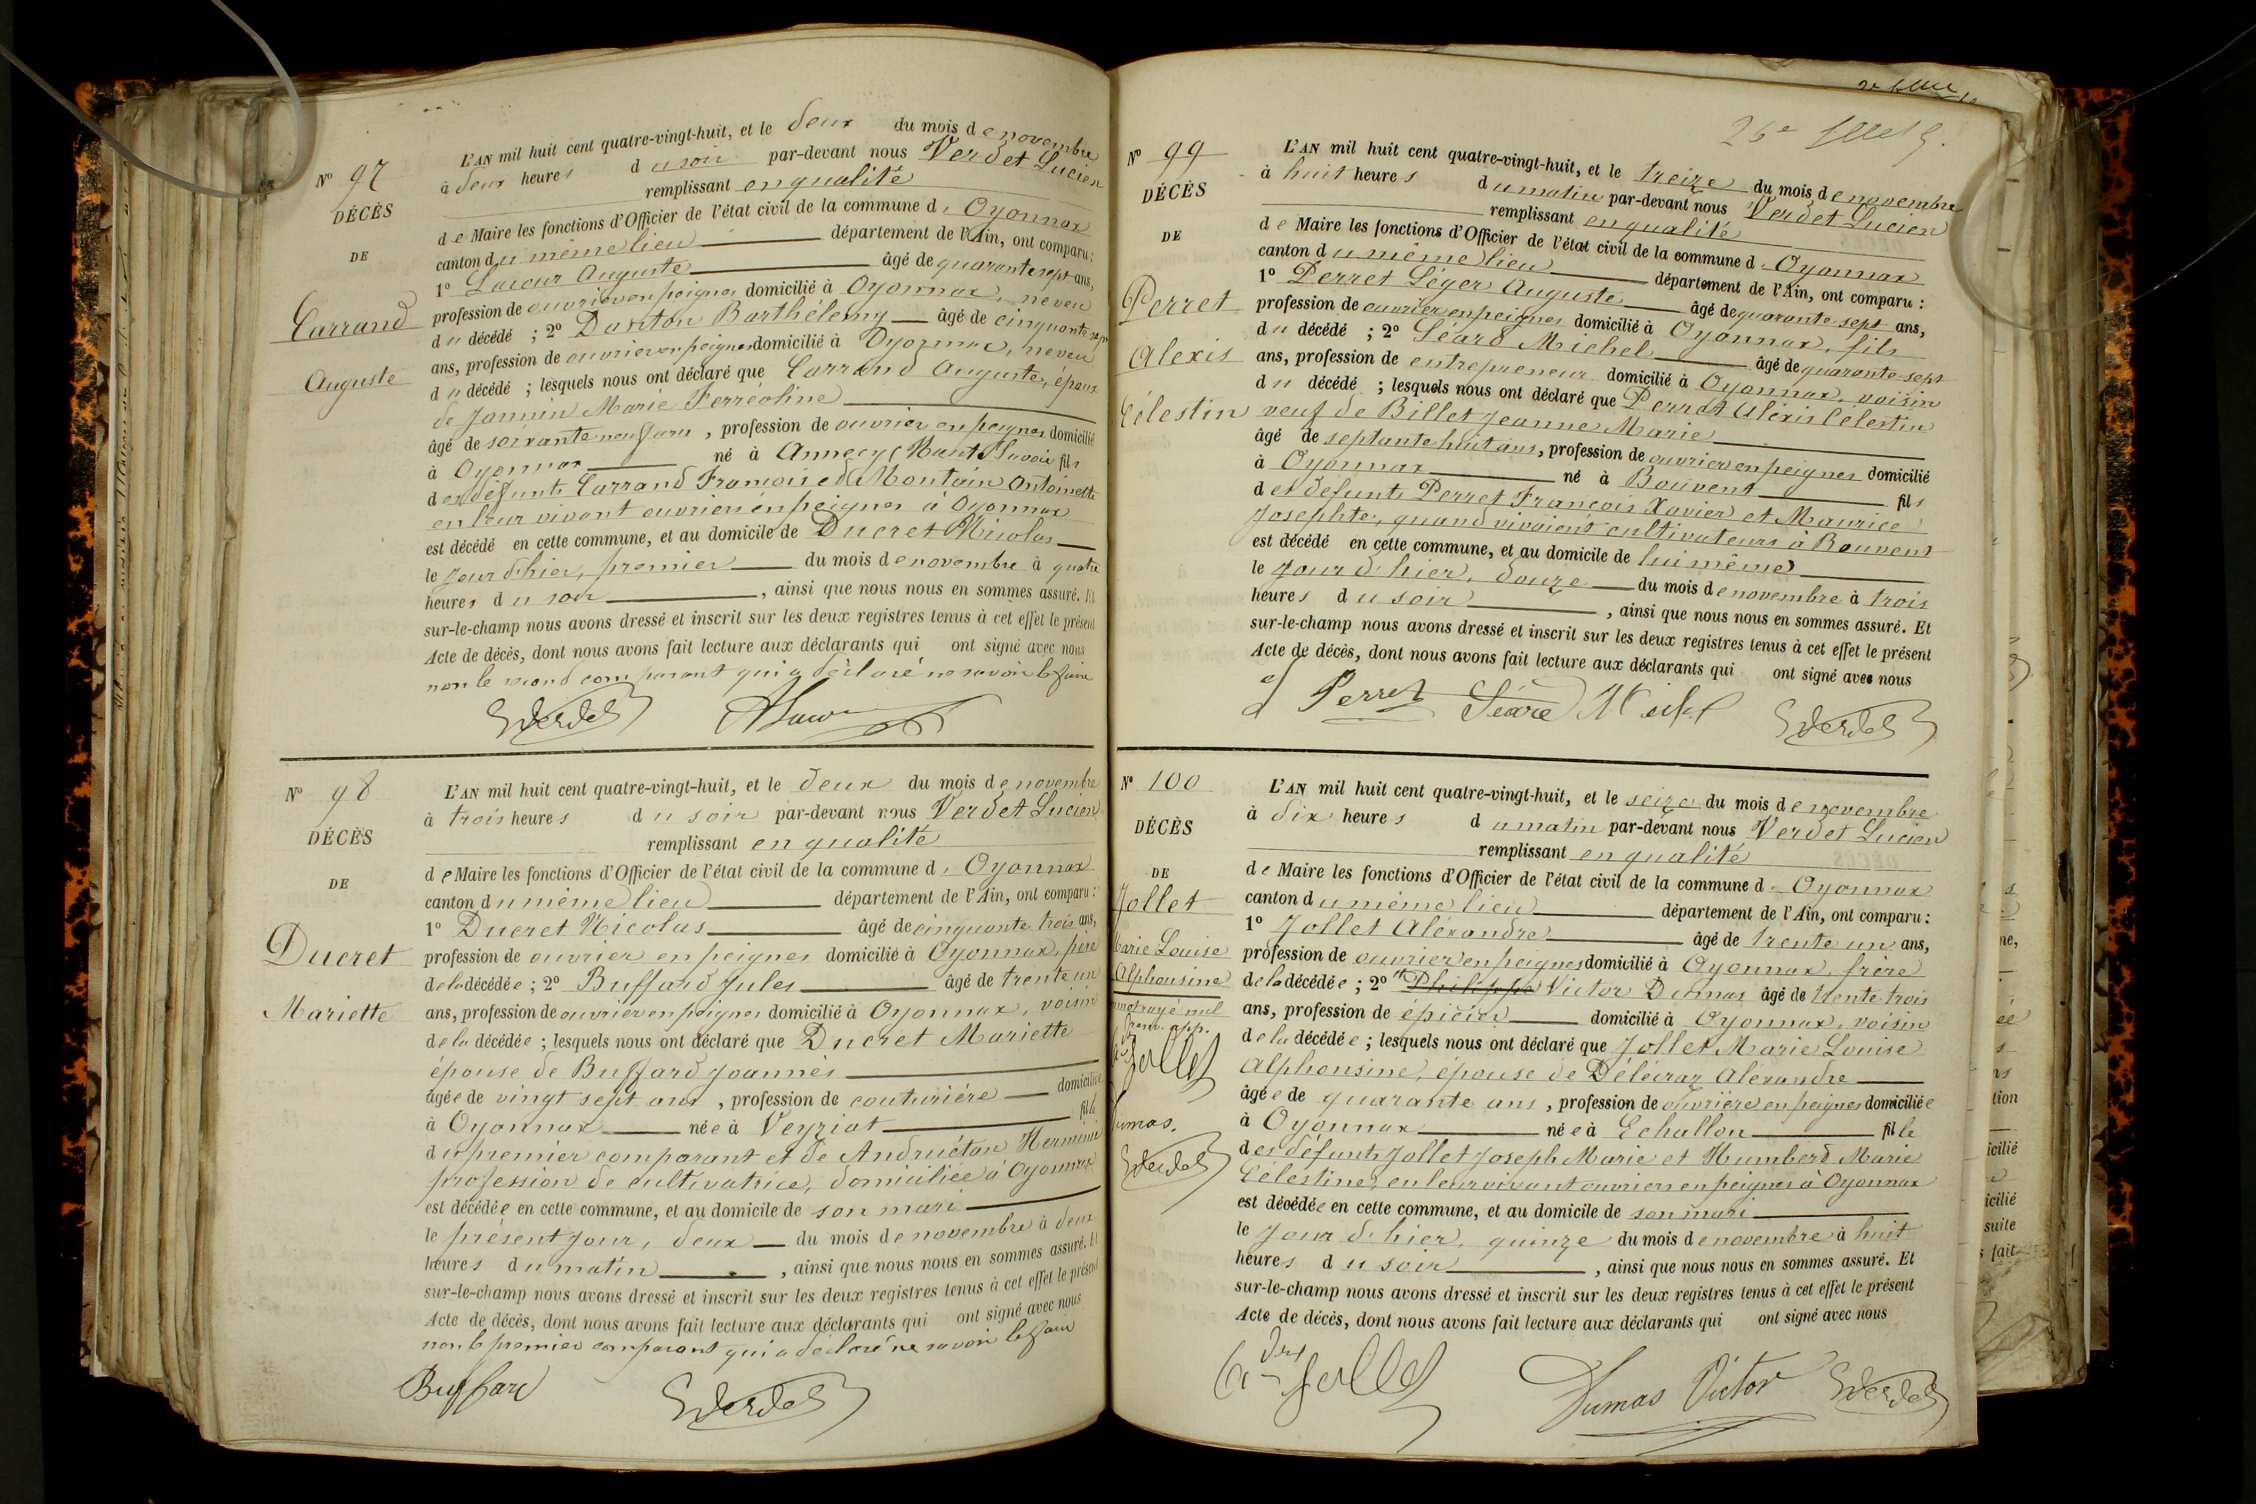 N° 97
DÉCÈS
DE
Carrand
Auguste
L'AN mil huit cent quatre-vingt-huit, et le deux du mois de novembre
à deux heures du soir par-devant nous Verdet Lucien
remplissant en qualité
de Maire les fonctions d'Officier de l'état civil de la commune d'Oyonnax
canton du même lieu département de l'Ain, ont comparu:
1° Lacour Auguste âgé de quarante sept ans,
profession de ouvrier en peignes domicilié à Oyonnax, neveu
du décédé ; 2° Darbon Barthélemy âgé de cinquante sept
ans, profession de ouvrier en peignes domicilié à Oyonnax, neveu
du décédé ; lesquels nous ont déclaré que Carrand Auguste, époux
de Jannin Marie Ferréoline
âgé de soixante neuf ans, profession de ouvrier en peignes domicilié
à Oyonnax né à Annecy (Haute Savoie fils
des défunts Carrand François et Montain Antoinette
en leur vivant ouvriers en peignes à Oyonnax
est décédé en cette commune, et au domicile de Ducret Nicolas
le jour d'hier, premier du mois de novembre à quatre
heures du soir, ainsi que nous nous en sommes assuré. Et
sur-le-champ nous avons dressé et inscrit sur les deux registres tenus à cet effet le présent
Acte de décès, dont nous avons fait lecture aux déclarants qui ont signé avec nous
non le second comparant qui a déclaré ne savoir le faire
Verdet
N° 98
DÉCÈS
DE
Ducret
Mariette
L'AN mil huit cent quatre-vingt-huit, et le deux du mois de novembre
à trois heures du soir par-devant nous Verdet Lucien
remplissant en qualité
de Maire les fonctions d'Officier de l'état civil de la commune d'Oyonnax
canton du même lieu département de l'Ain, ont comparu:
1° Ducret Nicolas âgé de cinquante trois ans,
profession de ouvrier en peignes domicilié à Oyonnax, père
de la décédée ; 2° Buffard Jules âgé de trente un
ans, profession de ouvrier en peignes domicilié à Oyonnax, voisin
de la décédée ; lesquels nous ont déclaré que Ducret Mariette
épouse de Buffard Joannès
âgée de vingt sept ans, profession de couturière domiciliée
à Oyonnax née à Veyziat fille
du premier comparant et de Andruétan Herminie
profession de cultivatrice, domiciliée à Oyonnax
est décédée en cette commune, et au domicile de son mari
le présent jour, deux du mois de novembre à deux
heures du matin, ainsi que nous nous en sommes assuré. Et
sur-le-champ nous avons dressé et inscrit sur les deux registres tenus à cet effet le présent
Acte de décès, dont nous avons fait lecture aux déclarants qui ont signé avec nous
non le premier comparant qui a déclaré ne savoir le faire
Buffard Verdet
N° 99
DÉCÈS
DE
Perret
Alexis
Célestin
L'AN mil huit cent quatre-vingt-huit, et le treize du mois de novembre
à huit heures du matin par-devant nous Verdet Lucien
remplissant en qualité
de Maire les fonctions d'Officier de l'état civil de la commune d'Oyonnax
canton du même lieu département de l'Ain, ont comparu :
1° Perret Léger Auguste âgé de quarante sept ans,
profession de ouvrier en peignes domicilié à Oyonnax, fils
du décédé ; 2° Séard Michel âgé de quarante sept
ans, profession de entrepreneur domicilié à Oyonnax, voisin
du décédé ; lesquels nous ont déclaré que Perret Alexis Célestin
veuf de Billet Jeanne Marie
âgé de septante huit ans, profession de ouvrier en peignes domicilié
à Oyonnax né à Bouvent fils
des défunts Perret François Xavier et Maurice
Josephte, quand vivaient cultivateurs à Bouvent
est décédé en cette commune, et au domicile de lui même
le jour d'hier, douze du mois de novembre à trois
heures du soir, ainsi que nous nous en sommes assuré. Et
sur-le-champ nous avons dressé et inscrit sur les deux registres tenus à cet effet le présent
Acte de décès, dont nous avons fait lecture aux déclarants qui ont signé avec nous
Perret Séard Michel Verdet
N° 100
DÉCÈS
DE
Jollet
Marie Louise
Alphonsine
Jollet
Dumas.
Verdet
L'AN mil huit cent quatre-vingt-huit, et le seize du mois de novembre
à dix heures du matin par-devant nous Verdet Lucien
remplissant en qualité
de Maire les fonctions d'Officier de l'état civil de la commune d'Oyonnax
canton du même lieu département de l'Ain, ont comparu :
1° Jollet Aléxandre âgé de trente un ans,
profession de ouvrier en peignes domicilié à Oyonnax, frère
de la décédée ; 2° Philippe Victor Dumas âgé de trente trois
ans, profession de épicier domicilié à Oyonnax, voisin
de la décédée ; lesquels nous ont déclaré que Jollet Marie Louise
Alphonsine, épouse de Délécraz Aléxandre
âgée de quarante ans, profession de ouvrière en peignes domiciliée
à Oyonnax née à Echallon fille
des défunts Jollet Joseph Marie et Humbert Marie
Célestine, en leur vivant ouvriers en peignes à Oyonnax
est décédée en cette commune, et au domicile de son mari
le jour d'hier, quinze du mois de novembre à huit
heures du soir, ainsi que nous nous en sommes assuré. Et
sur-le-champ nous avons dressé et inscrit sur les deux registres tenus à cet effet le présent
Acte de décès, dont nous avons fait lecture aux déclarants qui ont signé avec nous
Jollet Dumas Victor Verdet